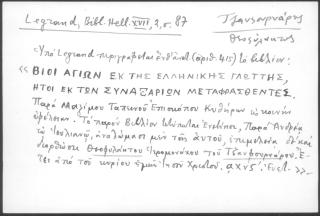 Legrand, Bibl. Hell. XVII, 2, σ. 87
Τζανφουρνάρος
Θεοφύλακτος
«Υπό Legrand περιγράφεται ἐνθ' ἀνωτ. (ἀριθ. 415) το βιβλίον:
«ΒΙΟΙ ΑΓΙΩΝ ΕΚ ΤΗΣ ΕΛΛΗΝΙΚΗΣ ΓΛΩΤΤΗΣ,
ΗΤΟΙ ΕΚ ΤΩΝ ΣΥΝΑΞΑΡΙΩΝ ΜΕΤΑΦΡΑΣΘΕΝΤΕΣ.
Παρά Μαξίμου Ταπεινού Επισκόπου Κυθήρων εις κοινήν
ωφέλειαν. Το παρόν Βιβλίον ετυπώθη Ενετίησι, Παρά Ανδρέᾳ
τω Ιουλιανῷ, αναλώμασι μεν τοις αυτού, επιμελεία δε καὶ
διορθώσει Θεοφυλάκτου Ιερομονάχου του Τζανφουρνάρου. Ἔ-
τει από του κυρίου ημών Ιησού Χριστού. αχνς΄. Ενετ. ».